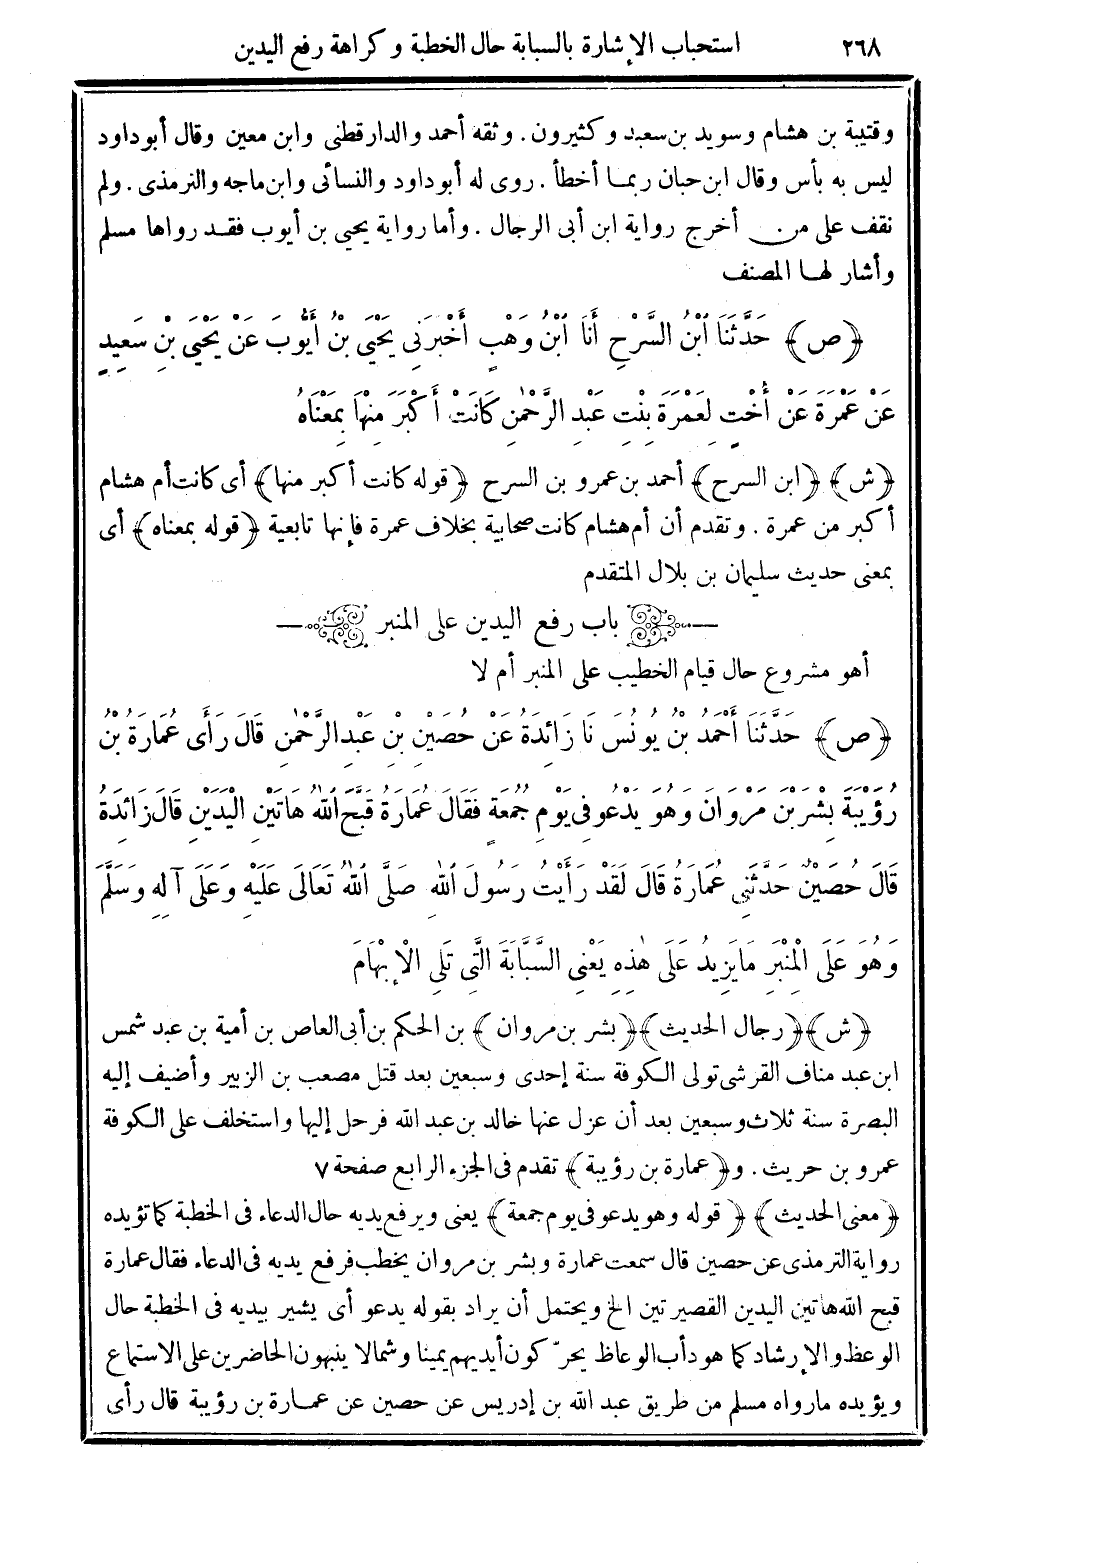 ٢٦٨ استحباب الإشارة بالسبابة حال الخطبة وكراهة رفع اليدين
وقتيبة بن هشام وسويد بن سعيد وكثيرون . وثقه أحمد والدارقطنى وابن معين وقال أبو داود
ليس به بأس وقال ابن حبان ربما أخطأ . روى له أبو داود والنسائى وابن ماجه والترمذى . ولم
نقف على من أخرج رواية ابن أبى الرجال . وأما رواية يحيى بن أيوب فقد رواها مسلم
وأشار لها المصنف
﴿ص﴾ حَدَّثَنَا ابْنُ السَّرْحِ أَنَا ابْنُ وَهْبٍ أَخْبَرَنِى يَحْيَى بْنُ أَيُّوبَ عَنْ يَحْيَى بْنِ سَعِيدٍ
عَنْ عَمْرَةَ عَنْ أُخْتٍ لِعَمْرَةَ بِنْتِ عَبْدِ الرَّحْمٰنِ كَانَتْ أَكْبَرَ مِنْهَا بِمَعْنَاهُ
﴿ش﴾ ﴿ابن السرح﴾ أحمد بن عمرو بن السرح ﴿قوله كانت أكبر منها﴾ أى كانت أم هشام
أكبر من عمرة . وتقدم أن أم هشام كانت صحابية بخلاف عمرة فإنها تابعية ﴿قوله بمعناه﴾ أى
بمعنى حديث سليمان بن بلال المتقدم
باب رفع اليدين على المنبر
أهو مشروع حال قيام الخطيب على المنبر أم لا
﴿ص﴾ حَدَّثَنَا أَحْمَدُ بْنُ يُونُسَ نَا زَائِدَةُ عَنْ حُصَيْنِ بْنِ عَبْدِ الرَّحْمٰنِ قَالَ رَأَى عُمَارَةُ بْنُ
رُؤَيْبَةَ بِشْرَ بْنَ مَرْوَانَ وَهُوَ يَدْعُو فِى يَوْمِ جُمُعَةٍ فَقَالَ عُمَارَةُ قَبَّحَ اللهُ هَاتَيْنِ الْيَدَيْنِ قَالَ زَائِدَةُ
قَالَ حُصَيْنٌ حَدَّثَنِى عُمَارَةُ قَالَ لَقَدْ رَأَيْتُ رَسُولَ اللهِ صَلَّى اللهُ تَعَالَى عَلَيْهِ وَعَلَى آلِهِ وَسَلَّمَ
وَهُوَ عَلَى الْمِنْبَرِ مَا يَزِيدُ عَلَى هٰذِهِ يَعْنِى السَّبَّابَةَ الَّتِى تَلِى الْإِبْهَامَ
﴿ش﴾ ﴿رجال الحديث﴾ ﴿بشر بن مروان﴾ بن الحكم بن أبى العاص بن أمية بن عبد شمس
ابن عبد مناف القرشى تولى الكوفة سنة إحدى وسبعين بعد قتل مصعب بن الزبير وأضيف إليه
البصرة سنة ثلاث وسبعين بعد أن عزل عنها خالد بن عبد الله فرحل إليها واستخلف على الكوفة
عمرو بن حريث . و﴿عمارة بن رؤيبة﴾ تقدم فى الجزء الرابع صفحة ٧
﴿معنى الحديث﴾ ﴿قوله وهو يدعو فى يوم جمعة﴾ يعنى ويرفع يديه حال الدعاء فى الخطبة كما تؤيده
رواية الترمذى عن حصين قال سمعت عمارة وبشر بن مروان يخطب فرفع يديه فى الدعاء فقال عمارة
قبح الله هاتين اليدين القصيرتين الخ ويحتمل أن يراد بقوله يدعو أى يشير بيديه فى الخطبة حال
الوعظ والإرشاد كما هو دأب الوعاظ يحرّكون أيديهم يمينا وشمالا ينبهون الحاضرين على الاستماع
ويؤيده مارواه مسلم من طريق عبد الله بن إدريس عن حصين عن عمارة بن رؤيبة قال رأى